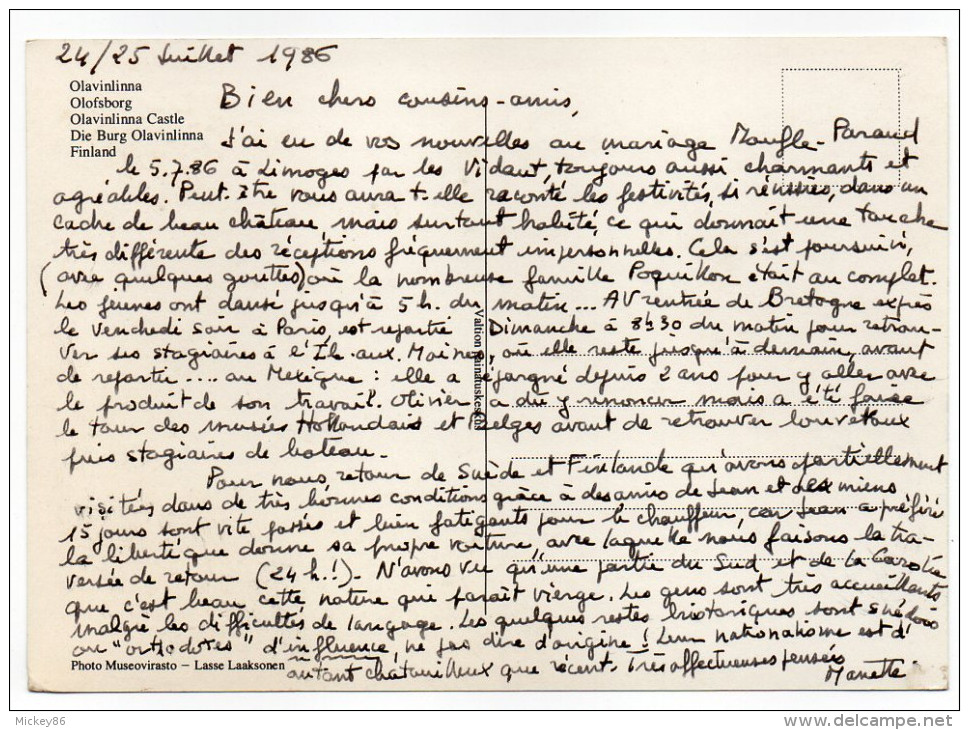 24/25 Juillet 1986
Olavinlinna
Olofsborg
Olavinlinna Castle
Die Burg Olavinlinna
Finland
Bien chers cousins-amis,
J'ai eu de vos nouvelles au mariage Moufle-
le 5.7.86 à Limoges par les Vidaut, toujours aussi charmants et
agréables. Peut-être vous aura t-elle raconté les festivités, si réussies, dans un
cadre de beau château, mais surtout habité, ce qui donnait une touche
très différente des réceptions fréquemment impersonnelles. Cela s'est poursuivi,
(avec quelques gouttes) où la nombreuse famille Poquillon était au complet.
Les jeunes ont dansé jusqu'à 5 h. du matin... AV rentrée de Bretagne exprès
le Vendredi soir à Paris, est repartie Dimanche à 8h30 du matin pour retrou-
ver ses stagiaires à l'Ile-aux-Moines, où elle reste jusqu'à demain, avant
de repartir .... au Mexique : elle a épargné depuis 2 ans pour y aller avec
le produit de son travail. Olivier a dû y renoncer mais a été faire
le tour des musées Hollandais et Belges avant de retrouver louveteaux
puis stagiaires de bateau.
Pour nous, retour de Suède et Finlande qu'avons partiellement
visitées dans de très bonnes conditions grâce à des amis de Jean et des miens
15 jours sont vite passés et bien fatigants pour le chauffeur, car Jean a préféré
la liberté que donne sa propre voiture, avec laquelle nous faisons la tra-
versée de retour (24 h.!). N'avons vu qu'une partie du Sud et de la Carélie
que c'est beau cette nature qui paraît vierge. Les gens sont très accueillants
malgré les difficultés de langage. Les quelques restes historiques sont suédois
ou "orthodoxes" d'influence, ne pas dire d'origine ! Leur nationalisme est d'
autant chatouilleux que récent. Très affectueuses pensées
Manette
Photo Museovirasto – Lasse Laaksonen
Valtion Painatuskeskus
Mickey86
www.delcampe.net